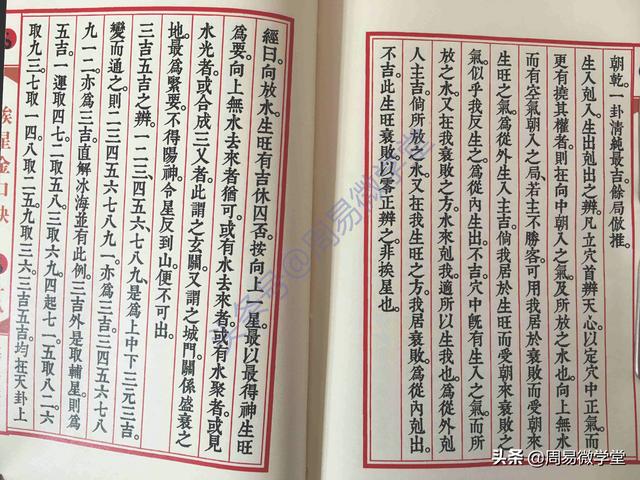 朝乾一卦清純最吉餘局倣推。
生入剋入生出剋出之辨。凡立穴首辨天心以定穴中正氣。而
更有撓其權者。則在向中朝入之氣。及所放之水也。向上無水
而有空氣朝入之局。若主不勝客。可用我居於衰敗而受朝來
生旺之氣。為從外生入主吉。倘我居於生旺而受朝來衰敗之
氣。似乎我反生之。為從內生出不吉。穴中既有生入之氣。而所
放之水。又在我衰敗之方。水來剋我。適所以生我也。為從外剋
入主吉。倘所放之水。又在我生旺之方。我居衰敗。為從內剋出。
不吉。此生旺衰敗。以零正辨之。非挨星也。
經曰。向放水生旺有吉休囚否。按向上一星。最以最得神生旺
為要。向上無水去來者猶可。或有水去來者。或有水聚者。或見
水光者。或合成三叉者。此謂之玄關。又謂之城門。關係盛衰之
地。最為緊要。不得陽神令星反到山。便不可出。
三吉五吉之辨。一二三四五六七八九。是為上中下三元三吉。
變而通之。則二三四五六七八九一。亦為三吉。三四五六七八
九一二。亦為三吉。直解冰海並有此例。三吉外。是取輔星。則為
五吉。一運取四七。二取五八。三取六九。四起七一。五取八二。六
取九三。七取一四。八取二五。九取三六。三吉五吉。均在天卦上
挨星金口訣
头条@周易微学堂